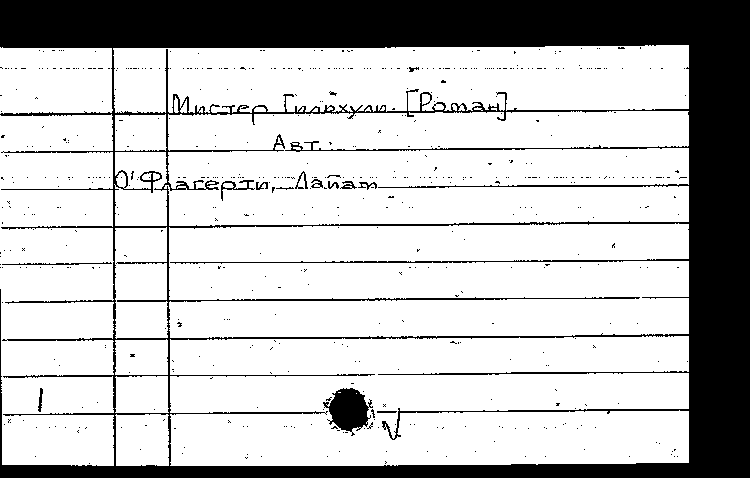 Мистер Гилхули. [Роман].
Авт.:
О'Флагерти, Лайам
1